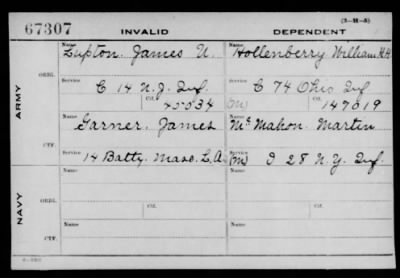 67307
INVALID
DEPENDENT
(3-18-5)
ARMY
NAVY
ORIG.
CTF.
ORIG.
CTF.
Name
Lupton. James N.
Name
Hollenberry William H.H
Service
C 14 N.J. Inf.
Ctf.
45534
Service
C 74 Ohio Inf
(M)
Ctf.
147019
Name
Garner. James
Name
McMahon. Martin
Service
14 Batty. Mass. L.A.
Service
(M) I 28 N.Y. Inf.
Name
Name
Service
Ctf.
Service
Ctf.
Name
Name
Service
Service